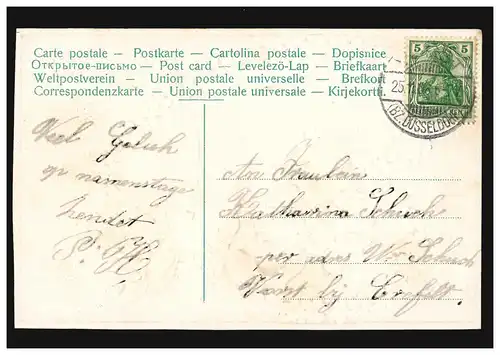 Carte postale – Postkarte – Cartolina postale – Dopisnice
Открытое-письмо – Post card – Levelezö-Lap – Briefkaart
Weltpostverein – Union postale universelle – Brefkort
Correspondenzkarte – Union postale universale – Kirjekortti
5 5
25.11.
(BZ. DÜSSELDORF)
Veel Geluk
op namenstage
zendet
P. H.
An Fraulein
Katharina Schuch
per adres Wr Schuch
Vorst by Crefelt.